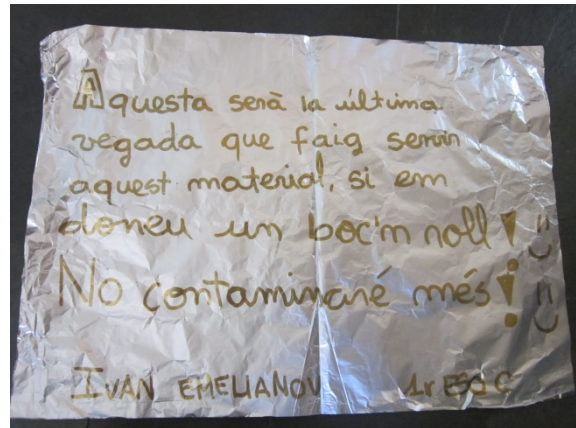 Aquesta serà la última
vegada que faig servir
aquest material, si em
doneu un boc'n roll! =)
No contaminaré més! =)
IVAN EMELIANOV 1r ESO C